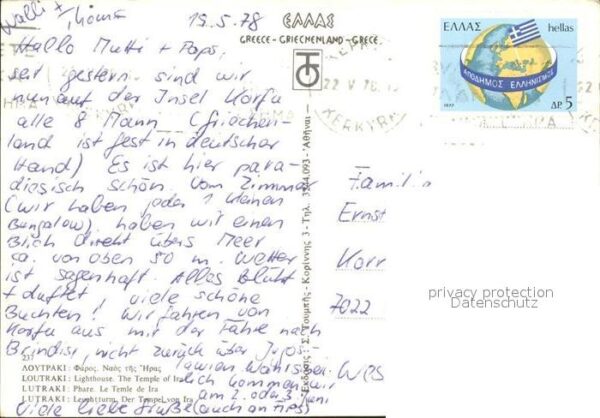 Walli +
Thomas
19.5.78
Hallo Mutti + Paps,
seit gestern sind wir
nun auf der Insel Korfu
alle 8 Mann (Griechen-
land ist fest in deutscher
Hand) Es ist hier para-
diesisch schön. Vom Zimmer
(wir haben jeder 1 kleinen
Bungalow) haben wir einen
Blick direkt übers Meer
ca. von oben 50 m. Wetter
ist sagenhaft. Alles blüht
+ duftet, viele schöne
Buchten! Wir fahren von
Korfu aus mit der Fähre nach
Brindisi, nicht zurück über Jugos-
lawien. Wahrschein-
lich kommen wir
am 2. oda 3. Juni
Viele liebe Grüße (auch an Tips)
ΕΛΛΑΣ
GREECE - GRIECHENLAND - GRECE
Ἐκδόσεις: Σ. Τουμπῆς - Κορίννης 3 - Τηλ. 3244.093 - Ἀθῆναι
237
ΛΟΥΤΡΑΚΙ: Φάρος. Ναὸς τῆς Ἥρας
LOUTRAKI: Lighthouse. The Temple of Ira
LUTRAKI: Phare. Le Temle de Ira
LUTRAKI: Leuchtturm. Der Tempel von Ira
ΕΛΛΑΣ hellas
ΑΠΟΔΗΜΟΣ ΕΛΛΗΝΙΣΜΟΣ
1977
ΔΡ. 5
22 V 78
KERKYRA
Familie
Ernst
Korr
7022
privacy protection
Datenschutz